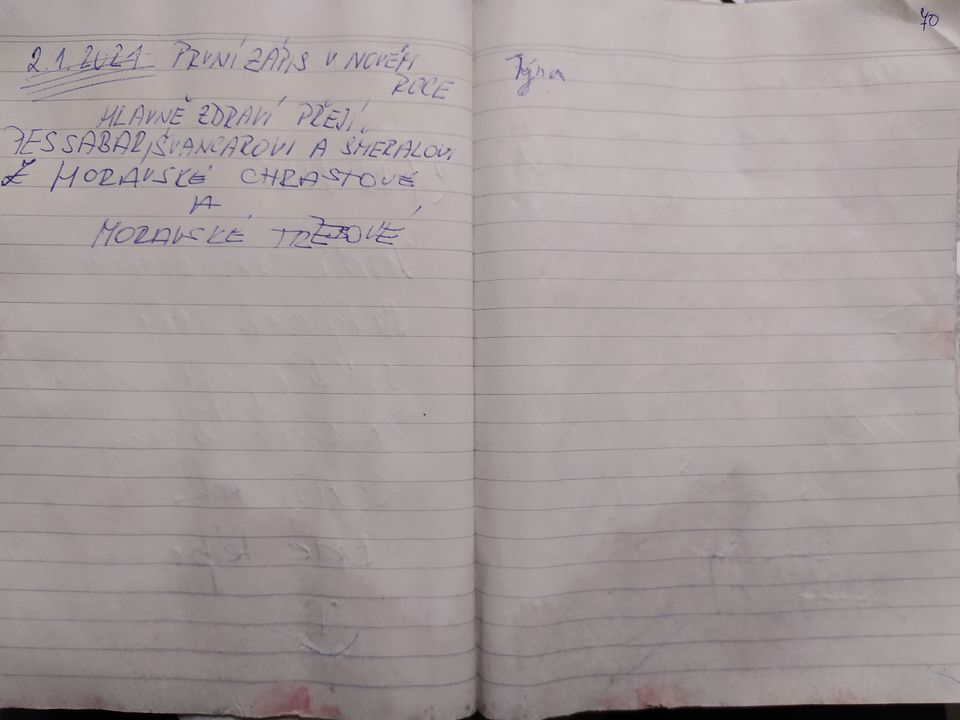 2.1.2021 PRVNÍ ZÁPIS V NOVÉM
ROCE
HLAVNĚ ZDRAVÍ PŘEJÍ
JESSABAR, ŠVANCAROVI A ŠMERALOVI
Z MORAVSKÉ CHRASTOVÉ
A
MORAVSKÉ
Týna
70